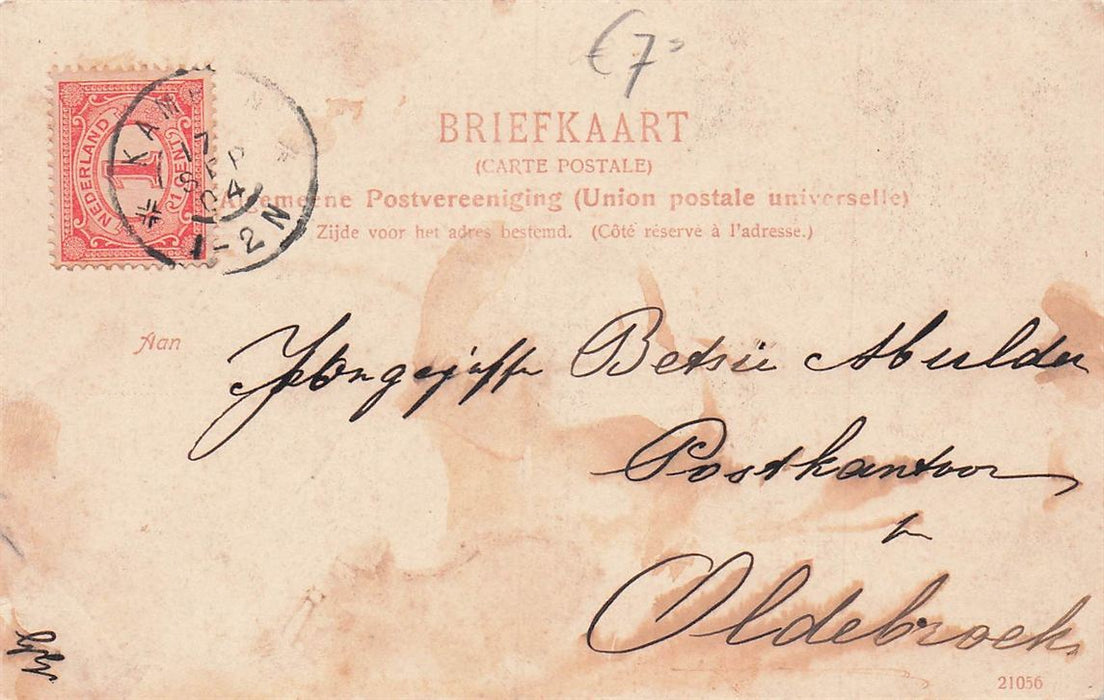 €7=
NEDERLAND
1
1 CENT
KAMPEN
17
SEP
04
1-2N
BRIEFKAART
(CARTE POSTALE)
Algemeene Postvereeniging (Union postale universelle)
Zijde voor het adres bestemd. (Côté réservé à l'adresse.)
Aan
Jongejuffr Betsie Mulder
Postkantoor
Oldebroek
21056